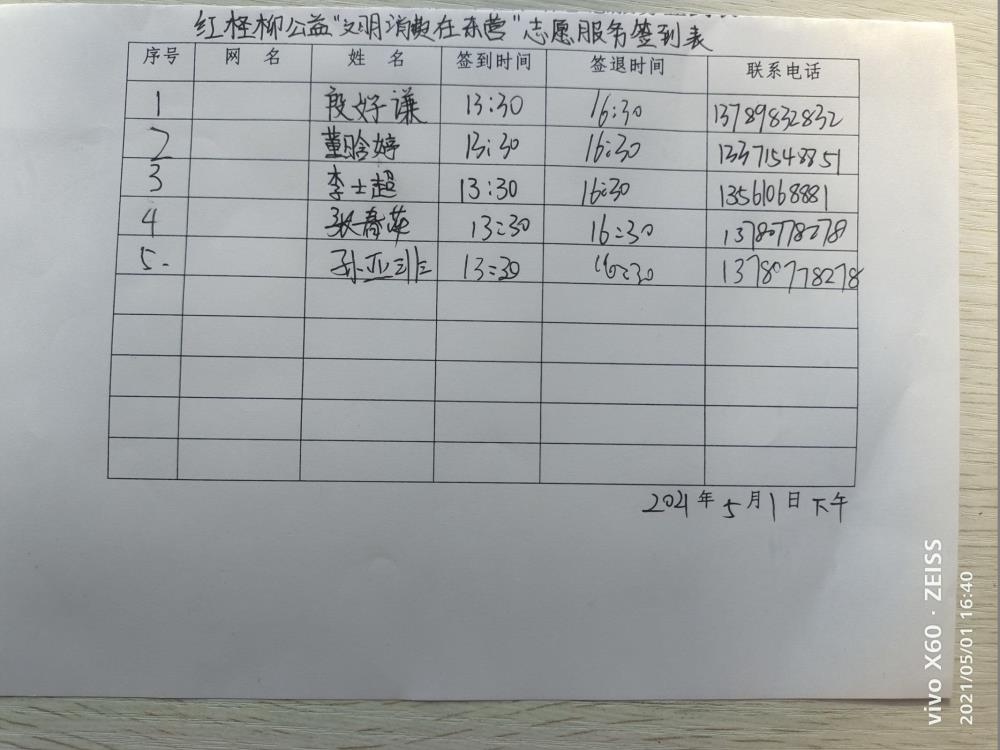 红柽柳公益"文明消费在东营"志愿服务签到表
序号 网 名 姓 名 签到时间 签退时间 联系电话
1 段好谦 13:30 16:30 13789832832
2 董晗婷 13:30 16:30 13371548851
3 李士超 13:30 16:30 13561068881
4 张春英 13:30 16:30 13780778278
5. 孙亚非 13:30 16:30 13780778278
2021年5月1日下午
vivo X60 · ZEISS
2021/05/01 16:40